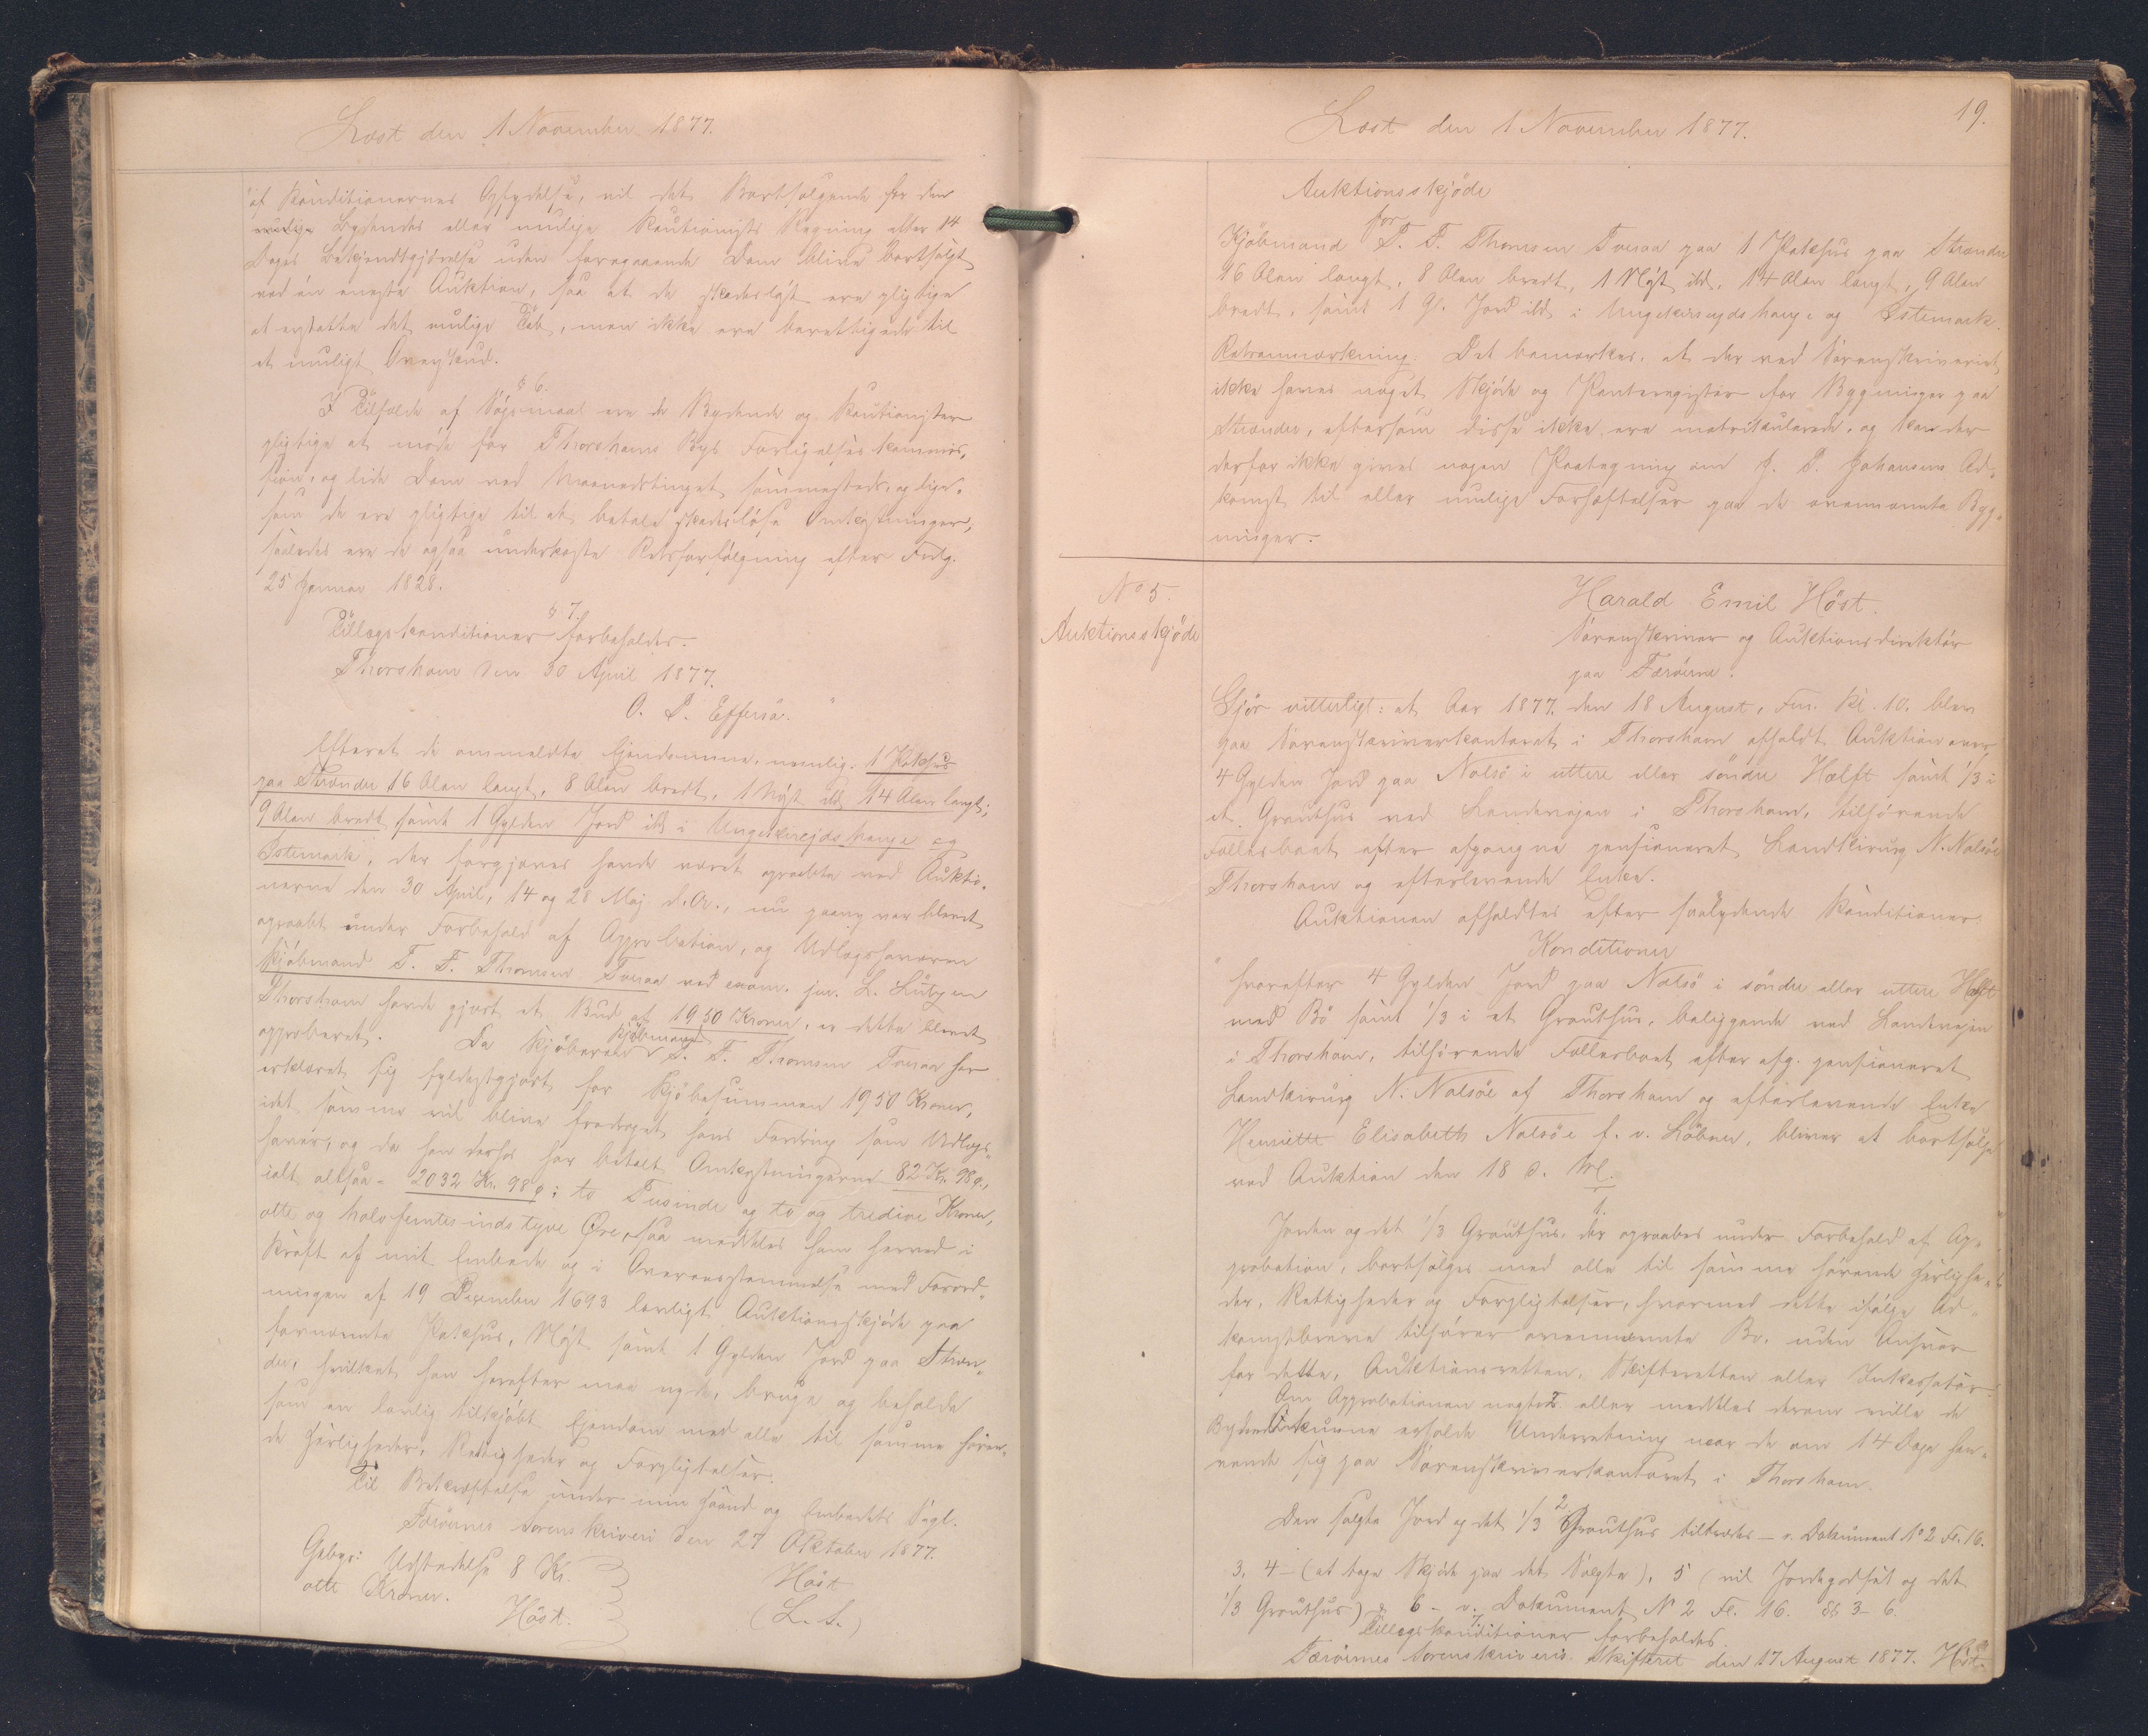 Læst den 1 November 1877.
af Konditionernes Opfyldelse, vil det Bortsolgende for den
mulige Bydendes eller mulige Kautionists Regning efter 14
Dages Bekjendtgjørelse uden foregaaende Dom blive bortsolgt
ved én eneste Auktion, saa at de skadesløst ere pligtige
at erstatte det mulige Tab, men ikke ere berettigede til
et muligt Overskud.
§ 6.
I Tilfælde af Søgsmaal ere de Bydende og Kautionister
pligtige at møde for Thorshavns Byes Forligelseskommis,
sion, og lide Dom ved Maanedstinget sammesteds, og lige-
som de ere pligtige til at betale skadesløse Omkostninger,
saaledes ere de ogsaa underkastede Retsforfølgning efter Frdg.
25 Januar 1828.
§ 7.
Tillægskonditioner forbeholdes.
Thorshavn den 30 April 1877.
O. P. Effersø. "
Efterat de ommeldte Ejendomme, nemlig: 1 Pakhus
paa Strænder 16 Alen langt, 8 Alen bredt, 1 Nøst ibd 14 Alen langt,
9 Alen bredt samt 1 Gylden Jord ibd i Ungekirejdshauge og
Østemark, der forgjæves havde været opraabte ved Auktio-
nerne den 30 April, 14 og 28 Maj d. Ar., nu paany var blevet
opraabt under Forbehold af Approbation, og Udlægshaveren
Kjøbmand T. F. Thomsen Tveraa ved exam. jur. L. Lützen
Thorshavn havde gjort et Bud af 1950 Kroner, er dette blevet
approberet. Da Kjøberen Kjøbmand T. F. Thomsen Tveraa har
erklæret sig fyldestgjort for Kjøbesummen 1950 Kroner,
idet samme vil blive fradraget hans Fordring som Udlægs-
haver, og da han derhos har betalt Omkostningerne 82 Kr. 98 ø.,
ialt altsaa - 2032 Kr. 98 ø: to Tusinde og to og tredive Kroner,
otte og halvfemtesindstyve Øre, saa meddeles ham herved i
Kraft af mit Embede og i Overensstemmelse med Forord-
ningen af 19 December 1693 lovligt Auktionsskjøde paa
fornævnte Pakhus, Nøst samt 1 Gylden Jord paa Stræn-
der, hvilket han herefter maa nyde, bruge og beholde
som en lovlig tilkjøbt Ejendom med alle til samme høren-
de Herligheder, Rettigheder og Forpligtelser.
Til Bekræftelse under min Haand og Embedets Segl.
Færøernes Sorenskriveri den 27 Oktober 1877.
Høst
(L. S.)
Gebyr: Udstedelse 8 Kr.
otte Kroner.
Høst.
19.
Læst den 1 November 1877.
Auktionsskjøde
for
Kjøbmand T. F. Thomsen Tveraa paa 1 Pakhus paa Strænder
16 Alen langt, 8 Alen bredt, 1 Nøst ibd. 14 Alen langt, 9 Alen
bredt, samt 1 Gl. Jord ibd i Ungekirejdshauge og Østemark.
Retsanmærkning: Det bemærkes, at der ved Sorenskriveriet
ikke haves noget Skjøde og Panteregister for Bygninger paa
Strænder, eftersom disse ikke ere matrikulerede, og kan der
derfor ikke gives nogen Paategning om J. P. Johansens Ad-
komst til eller mulige Forhæftelser paa de ovennævnte Byg-
ninger.
No 5.
Auktionsskjøde
Harald Emil Høst.
Sorenskriver og Auktionsdirektør
paa Færøerne.
Gjør vitterligt: at Aar 1877. den 18 August, Fm. Kl. 10. blev
paa Sorenskriverkontoret i Thorshavn afholdt Auktion over
4 Gylden Jord paa Nolsø i uttere eller søndre Hælft samt 1/3 i
et Grouthus ved Landevejen i Thorshavn, tilhørende
Fællesboet efter afgangne pensioneret Landkirurg N. Nolsøe
Thorshavn og efterlevende Enke.
Auktionen afholdtes efter saalydende Konditioner
Konditioner
" hvorefter 4 Gylden Jord paa Nolsø i søndre eller uttere Hælft
med Bø samt 1/3 i et Grouthus, beliggende ved Landevejen
i Thorshavn, tilhørende Fællesboet efter afg. pensioneret
Landkirurg N. Nolsøe af Thorshavn og efterlevende Enke
Henriette Elisabeth Nolsøe f. v. Løbner, bliver at bortsælge
ved Auktion den 18 d. M.
1.
Jorden og det 1/3 Grouthus, der opraabes under Forbehold af Ap-
probation, bortsælges med alle til samme hørende Herlighe-
der, Rettigheder og Forpligtelser, hvormed dette ifølge Ad-
komstbreve tilhører ovennævnte Bo, uden Ansvar
for dette, Auktionsretten, Skifteretten eller Inkassator.
Om Approbationen nægtes eller meddeles derom ville de
Bydende kunne erholde Underretning naar de om 14 Dage hen-
vende sig paa Sorenskriverkontoret i Thorshavn.
2.
Den solgte Jord og det 1/3 Grouthus tiltrædes - v. Dokument No 2 Fl. 16.
3, 4 - (at tage Skjøde paa det Solgte), 5 (vil Jordegodset og det
1/3 Grouthus) & 6 - v. Dokument No 2 Fl. 16. §§ 3-6.
7.
Tillægskonditioner forbeholdes.
Færøernes Sorenskriveri. Skifteret den 17 August 1877. Høst.